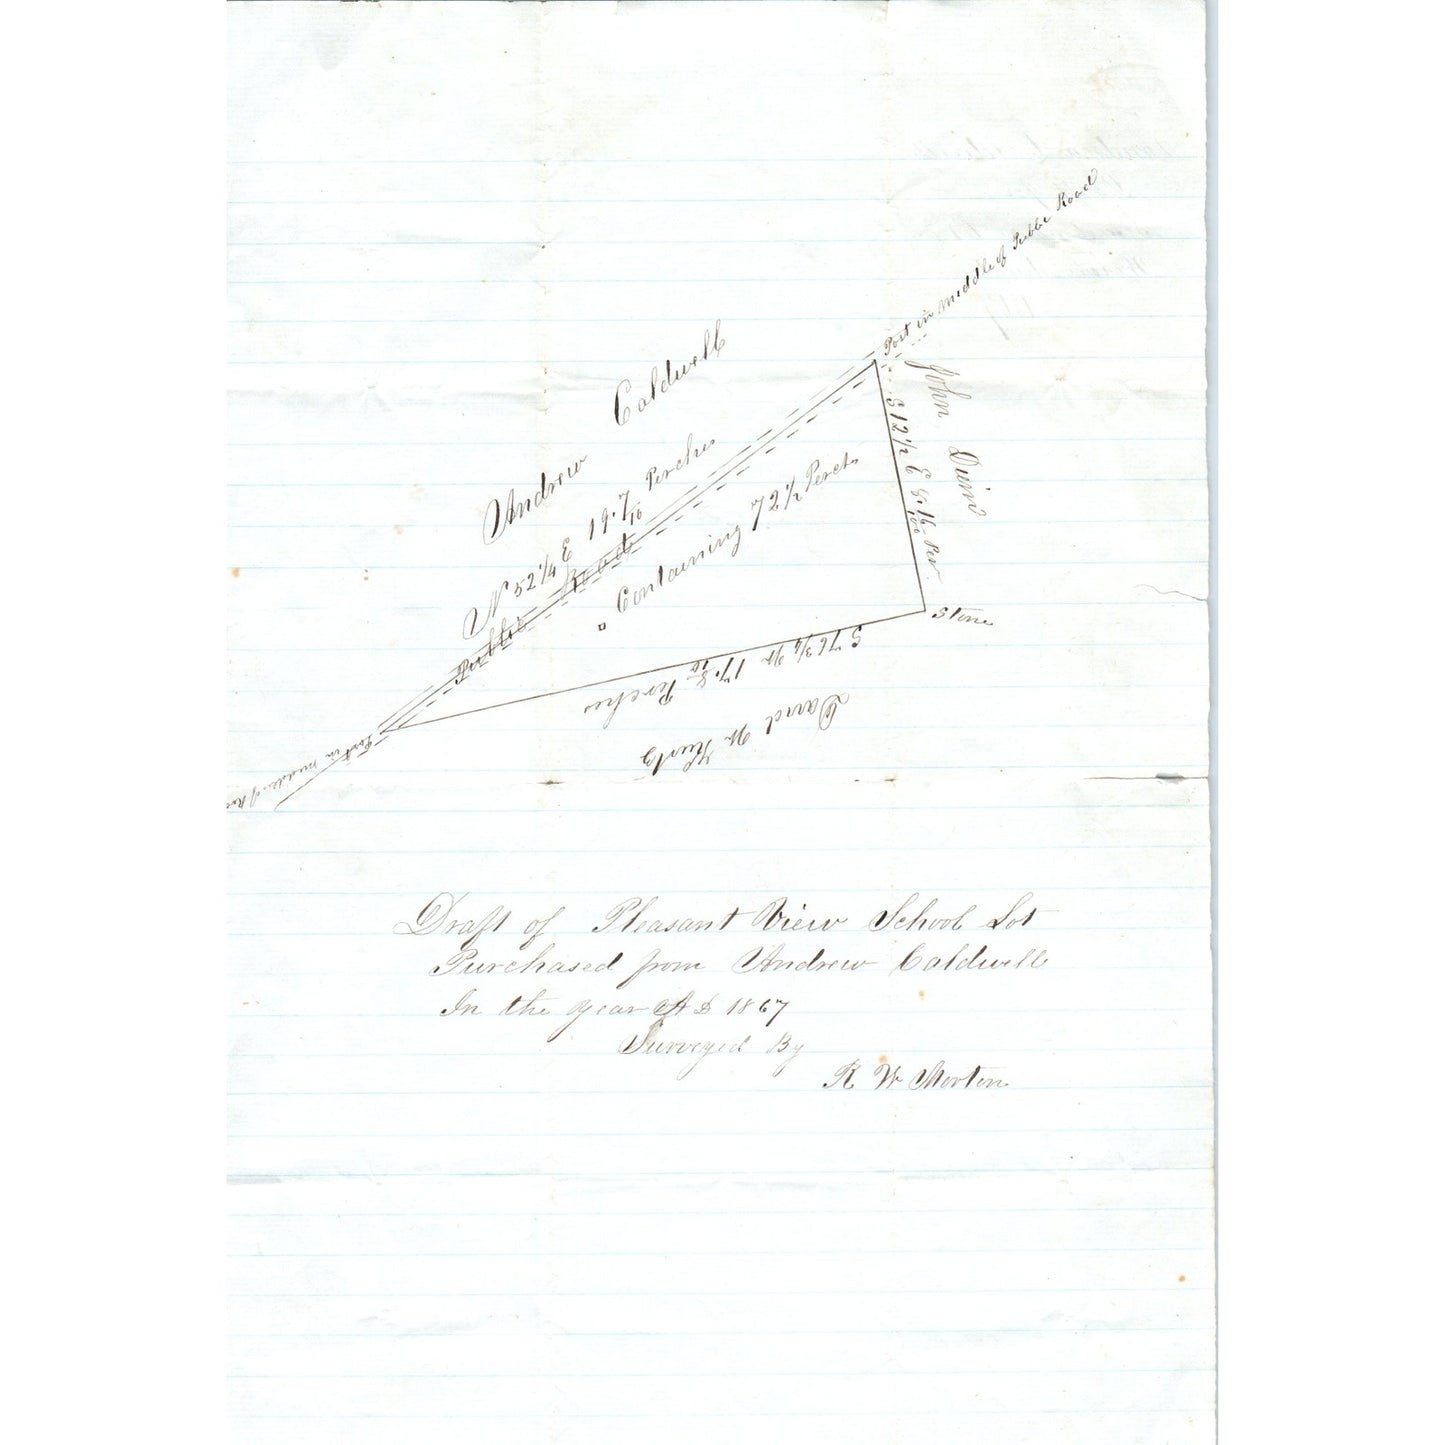 Post in middle of Public Road
Andrew Caldwell
N 52 1/4 E 19.7/10 Perches
Public Road
Containing 72 1/2 Perch
John Dunn
S 12 1/2 E
Per.
Stone
S 76 3/4 W 17.8/10 Perches
David W Kurtz
Post in middle of
Draft of Pleasant View School Lot
Purchased from Andrew Caldwell
In the year A D 1867
Surveyed By
R W Morton